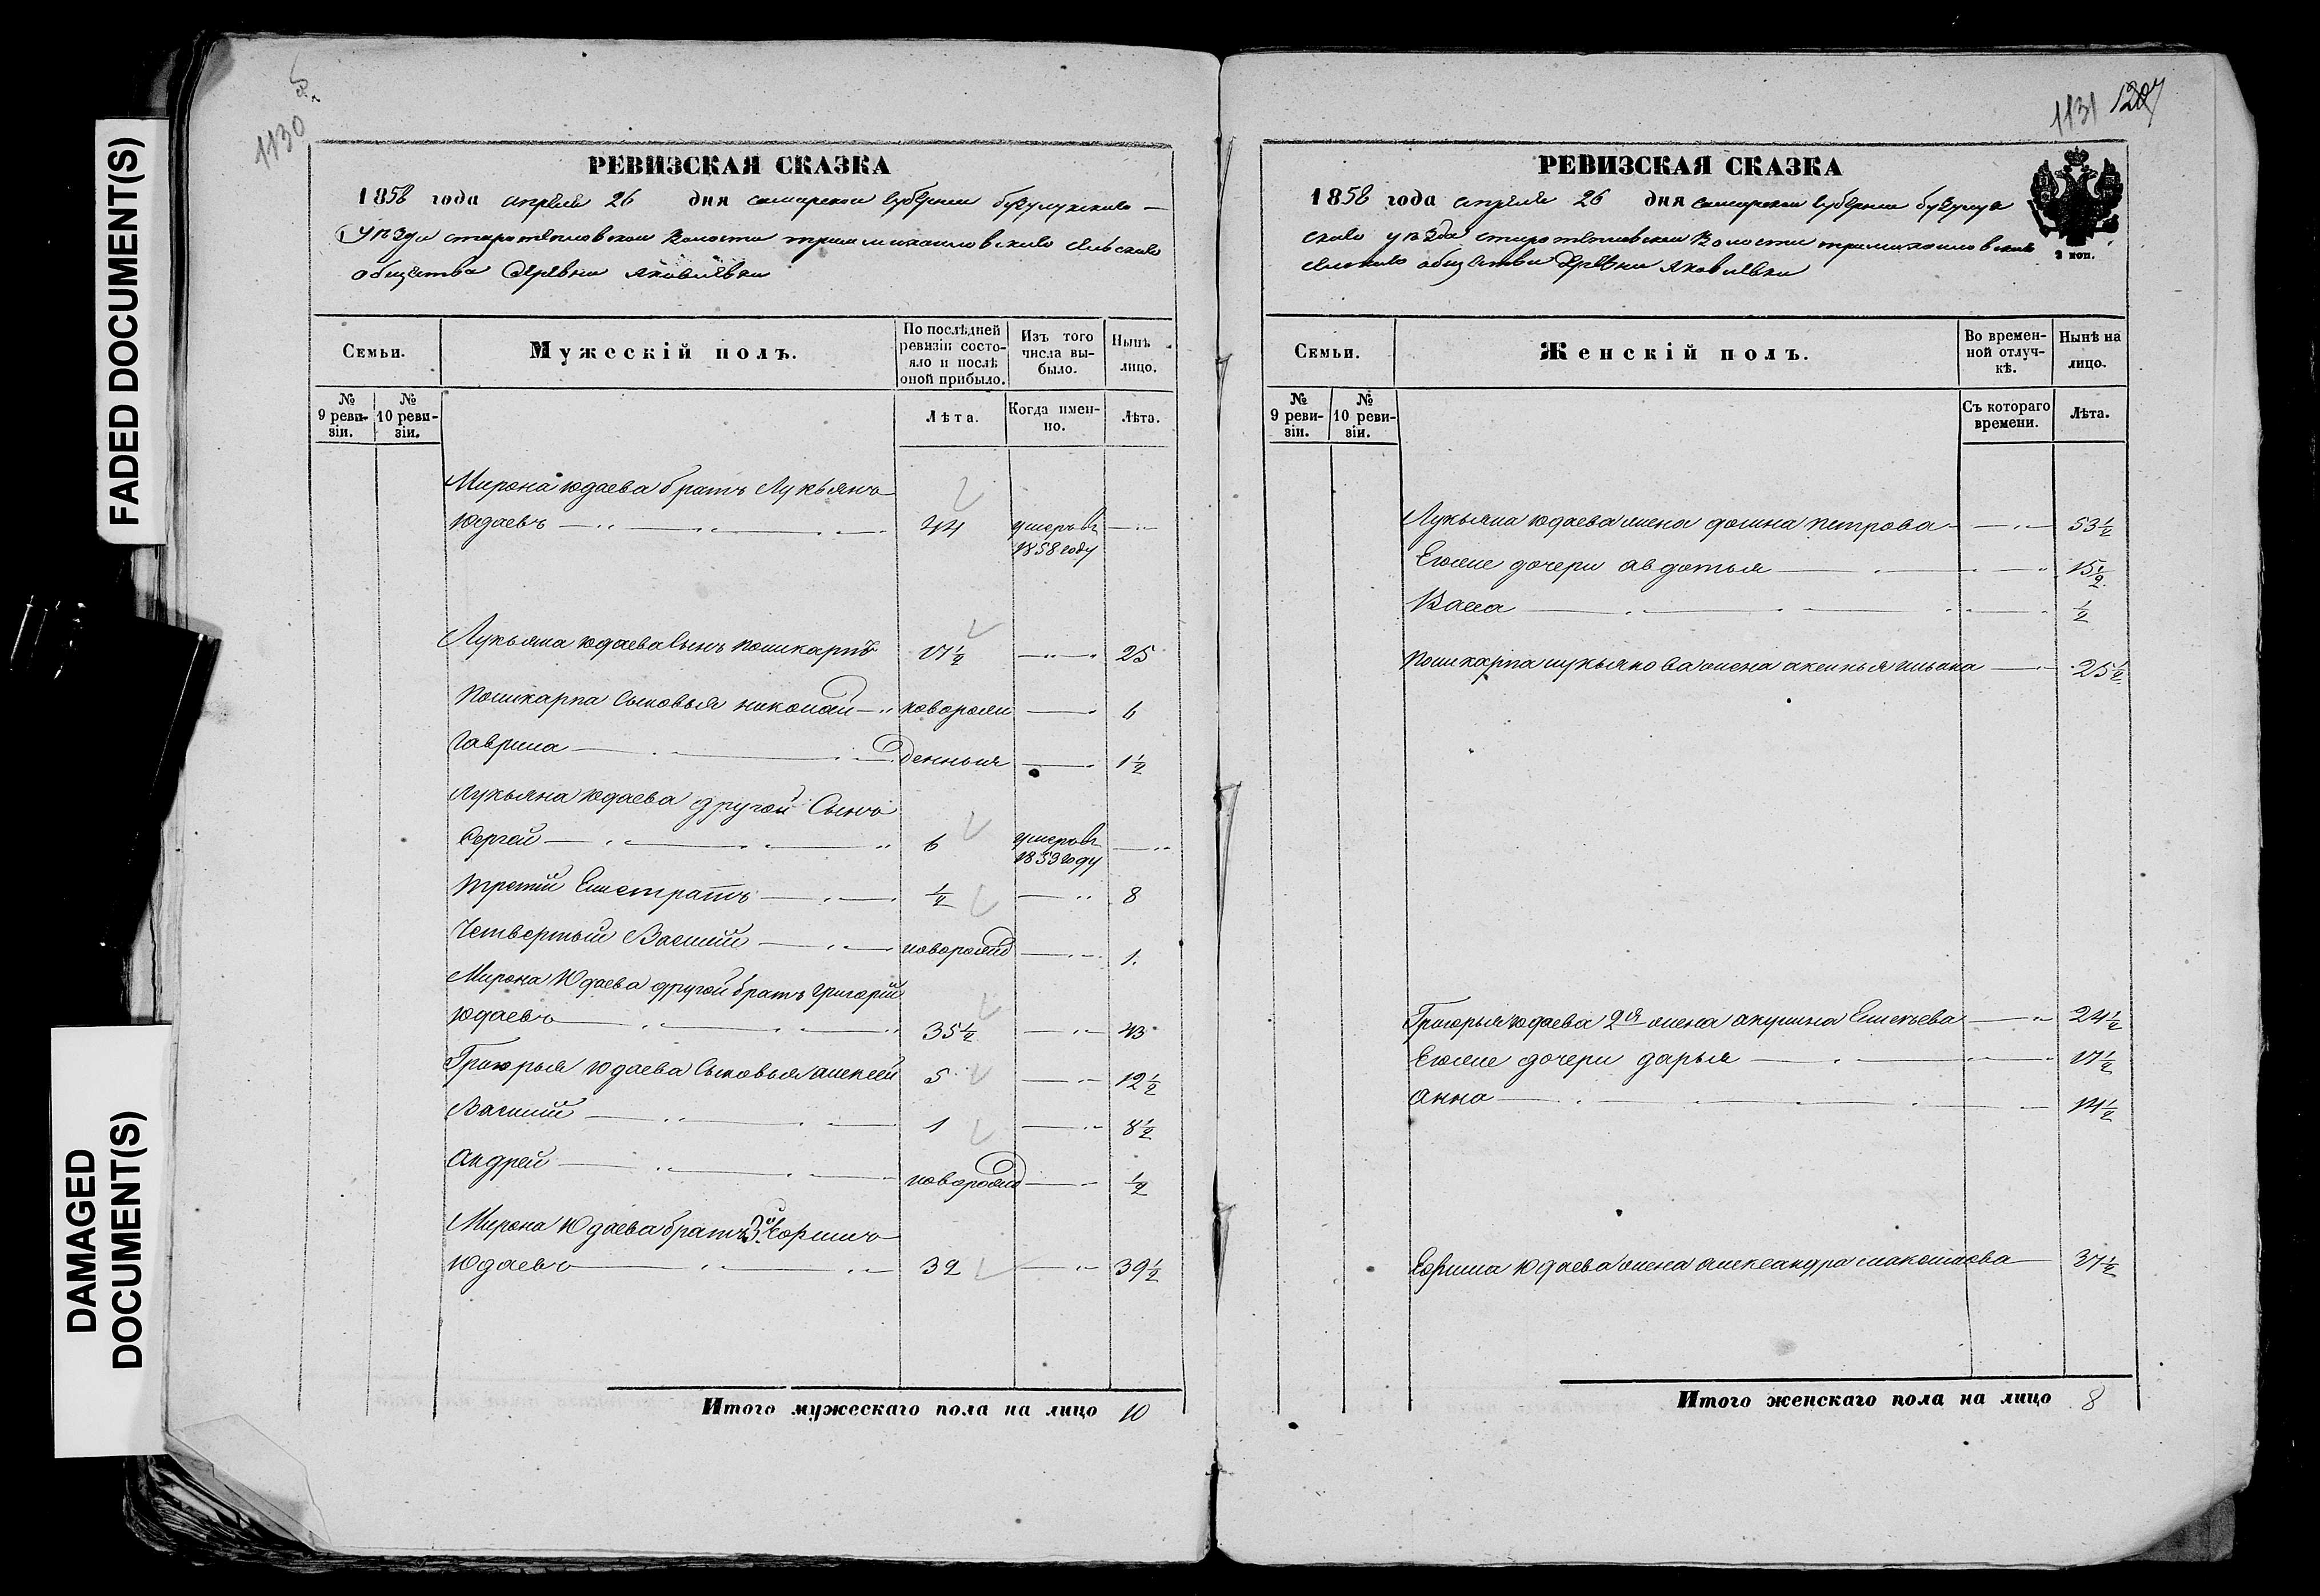 FADED DOCUMENT(S)
DAMAGED
DOCUMENT(S)
1130
РЕВИЗСКАЯ СКАЗКА
1858 года апреля 26 дня самарской губернии бузулукскаго
уезда старотепловской волости сельскаго
общества деревни яковлевки
Семьи.
Мужескій полъ.
По послѣдней
ревизіи состо-
яло и послѣ
оной прибыло.
Изъ того
числа вы-
было.
Нынѣ
лицо.
№
9 реви-
зіи.
№
10 реви-
зіи.
Лѣта.
Когда имен-
но.
Лѣта.
Мирона юдаева братъ Лукьянъ
юдаевъ 44 умеръ въ
1858 году
Лукьяна юдаева сынъ поликарпъ 17½ 25
поликарпа сыновья николай новорож 6
гаврила денныя 1½
лукьяна юдаева другой сынъ
Сергей 6 умеръ въ
1853 году
третий Елистратъ ½ 8
Четвертый Василий новорожд 1.
Мирона Юдаева другой братъ григорий
юдаевъ 35½ 43
Григорья юдаева сыновья алексей 5 12½
Василий 1 8½
андрей новорожд ½
Мирона Юдаева братъ 3й Ефимъ
Юдаевъ 32 39½
Итого мужескаго пола на лицо 10
1131 1207
РЕВИЗСКАЯ СКАЗКА
2 коп.
1858 года апреля 26 дня самарской губернии бузулук
скаго уезда старотепловской волости
сельскаго общества деревни яковлевки
Семьи.
Женскій полъ.
Во времен-
ной отлуч-
кѣ.
Нынѣ на
лицо.
№
9 реви-
зіи.
№
10 реви-
зіи.
Съ котораго
времени.
Лѣта.
Лукьяна юдаева жена домна петрова 53½
Егоже дочери авдотья 15½
Васса ½
поликарпа лукьянова жена аксинья 25½
Григорья юдаева 2я жена акулина Елисѣева 24½
Егоже дочери дарья 17½
анна 14½
Ефима юдаева жена александра 37½
Итого женскаго пола на лицо 8